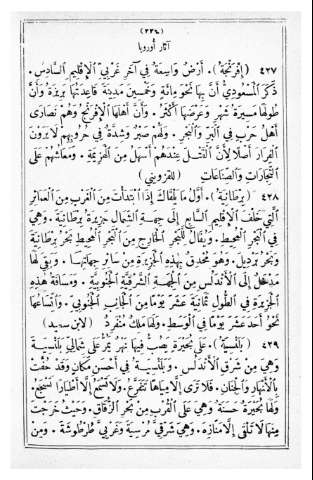 (٢٣٤)
آثار أوروبا
٤٢٧ (إِفْرَنْجَةُ). أَرْضٌ وَاسِعَةٌ فِي آخِرِ غَرْبِيِّ ٱلْإِقْلِيمِ ٱلسَّادِسِ.
ذَكَرَ ٱلْمَسْعُودِيُّ أَنَّ بِهَا نَحْوَ مِائَةٍ وَخَمْسِينَ مَدِينَةً قَاعِدَتُهَا بَرِيزَةُ وَأَنَّ
طُولَهَا مَسِيرَةُ شَهْرٍ وَعَرْضَهَا أَكْثَرُ. وَأَنَّ أَهْلَهَا ٱلْإِفْرَنْجُ وَهُمْ نَصَارَى
أَهْلُ حَرْبٍ فِي ٱلْبَرِّ وَٱلْبَحْرِ. وَلَهُمْ صَبْرٌ وَشِدَّةٌ فِي حُرُوبِهِمْ لَا يَرَوْنَ
ٱلْفِرَارَ أَصْلًا لِأَنَّ ٱلْقَتْلَ عِنْدَهُمْ أَسْهَلُ مِنَ ٱلْهَزِيمَةِ. وَمَعَاشُهُمْ عَلَى
ٱلتِّجَارَاتِ وَٱلصِّنَاعَاتِ (للقزويني)
٤٢٨ (بَرْطَانِيَةُ). أَوَّلُ مَا يَلْقَاكَ إِذَا ٱبْتَدَأْتَ مِنَ ٱلْغَرْبِ مِنَ ٱلْعَمَائِرِ
ٱلَّتِي خَلْفَ ٱلْإِقْلِيمِ ٱلسَّابِعِ إِلَى جِهَةِ ٱلشَّمَالِ جَزِيرَةُ بَرْطَانِيَةَ. وَهِيَ
فِي ٱلْبَحْرِ ٱلْمُحِيطِ. وَيُقَالُ لِلْبَحْرِ ٱلْخَارِجِ مِنَ ٱلْبَحْرِ ٱلْمُحِيطِ بَحْرُ بَرْطَانِيَةَ
وَبَحْرُ بَرْدِيلَ. وَهُوَ مُحْدِقٌ بِهٰذِهِ ٱلْجَزِيرَةِ مِنْ سَائِرِ جِهَاتِهَا. وَبَقِيَ لَهَا
مَدْخَلٌ إِلَى ٱلْأَنْدَلُسِ مِنَ ٱلْجِهَةِ ٱلشَّرْقِيَّةِ ٱلْجَنُوبِيَّةِ. وَمَسَافَةُ هٰذِهِ
ٱلْجَزِيرَةِ فِي ٱلطُّولِ ثَمَانِيَةَ عَشَرَ يَوْمًا مِنَ ٱلْجَانِبِ ٱلْجَنُوبِيِّ. وَٱتِّسَاعُهَا
نَحْوُ أَحَدَ عَشَرَ يَوْمًا فِي ٱلْوَسَطِ. وَلَهَا مَلِكٌ مُنْفَرِدٌ (لابن سعيد)
٤٢٩ (بَلَنْسِيَةُ). عَلَى بُحَيْرَةٍ يَصُبُّ فِيهَا نَهْرٌ يَمُرُّ عَلَى شَمَالِيِّ بَلَنْسِيَةَ
وَهِيَ مِنْ شَرْقِ ٱلْأَنْدَلُسِ. وَبَلَنْسِيَةُ فِي أَحْسَنِ مَكَانٍ وَقَدْ حُفَّتْ
بِٱلْأَنْهَارِ وَٱلْجِنَانِ. فَلَا تَرَى إِلَّا مِيَاهًا تَتَفَرَّعُ. وَلَا تَسْمَعُ إِلَّا أَطْيَارًا تَسْجَعُ.
وَلَهَا بُحَيْرَةٌ حَسَنَةٌ وَهِيَ عَلَى ٱلْقُرْبِ مِنْ بَحْرِ ٱلزُّقَاقِ. وَحَيْثُ خَرَجْتَ
مِنْهَا لَا تَلْقَى إِلَّا مَنَازِهَ. وَهِيَ شَرْقِيَّ مُرْسِيَةَ وَغَرْبِيَّ طَرْطُوشَةَ. وَمِنْ